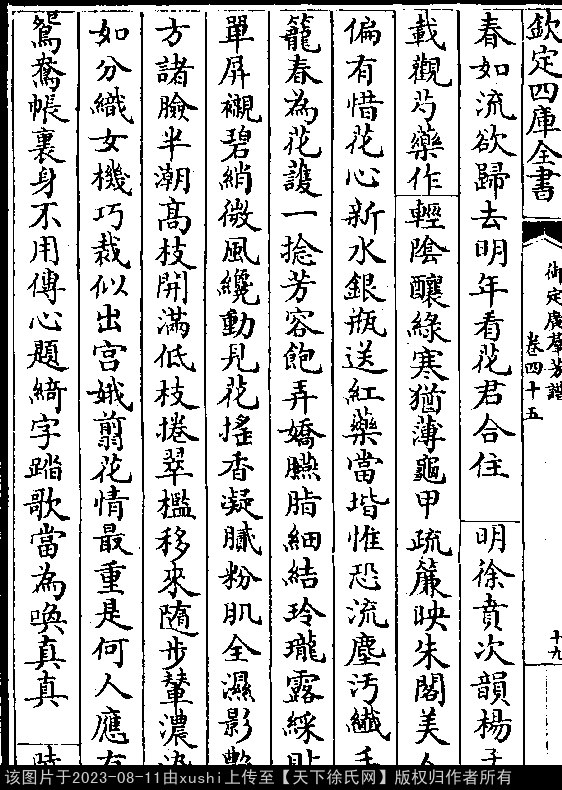 欽定四庫全書
御定廣羣芳譜
卷四十五
十九
春如流欲歸去明年看花君合住 明徐賁次韻楊
載觀芍藥作 輕陰釀綠寒猶薄龜甲疏簾映朱閣美人
偏有惜花心新水銀瓶送紅藥當堦惟恐流塵汚纖手
籠春為花護一捻芳容飽弄嬌臙脂細結玲瓏露綵貼
單屏襯碧綃微風纔動見花搖香凝膩粉肌全濕影
方諸臉半潮髙枝開滿低枝捲翠檻移來隨步輦濃
如分織女機巧裁似出宫娥翦花情最重是何人應有
鴛鴦帳裏身不用傳心題綺字踏歌當為喚真真 時
该图片于2023-08-11由xushi上传至【天下徐氏网】版权归作者所有